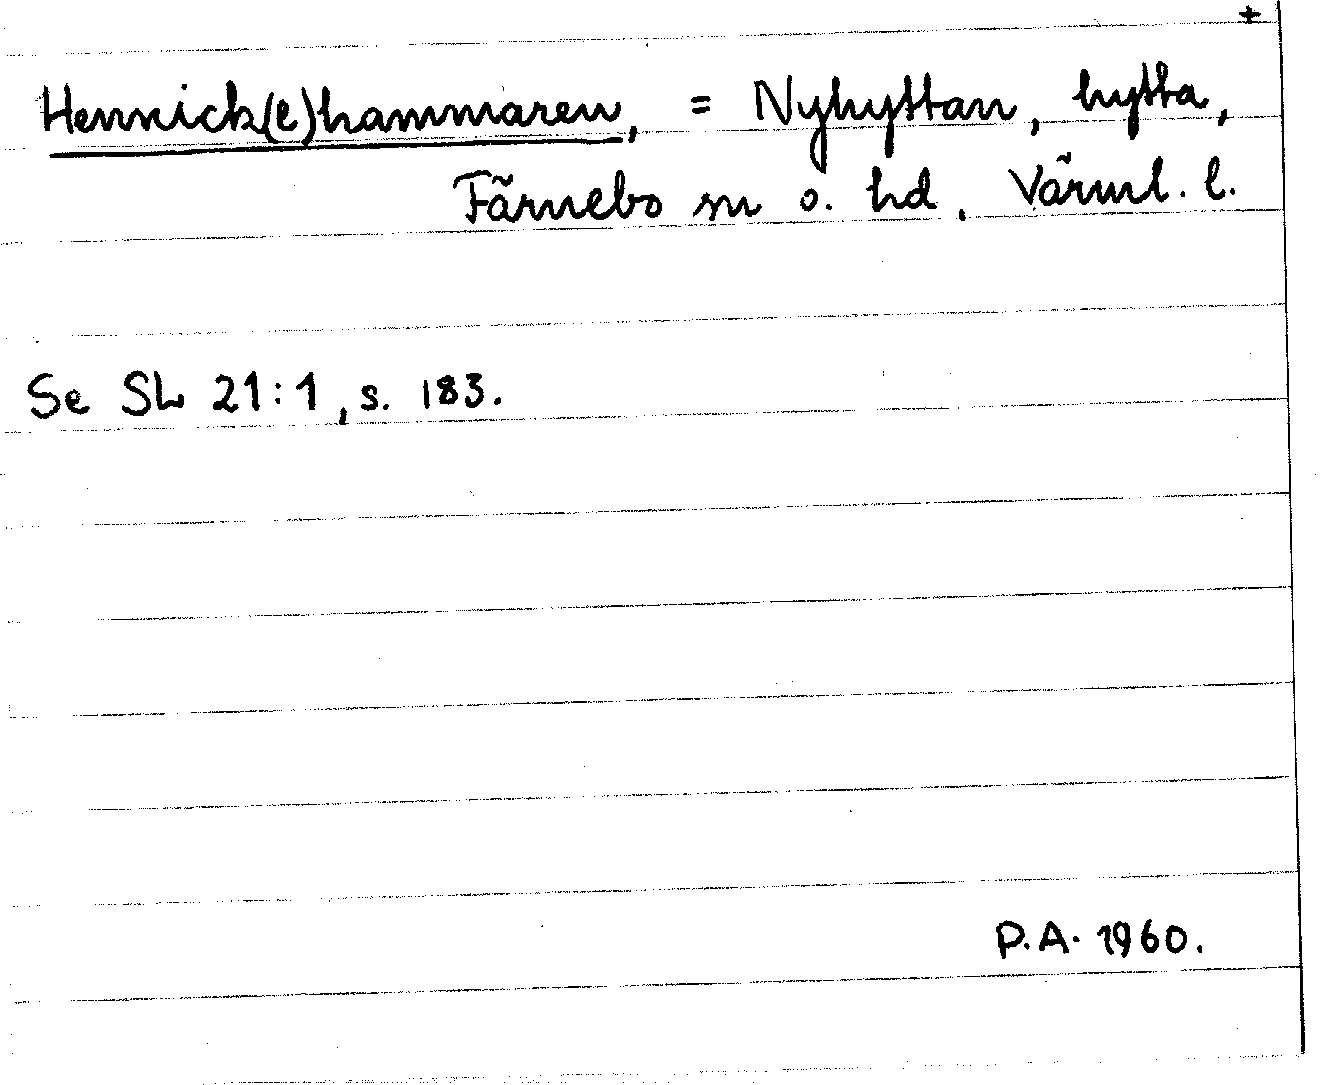 +
Hennick(e)hammaren, = Nyhyttan, hytta,
Färnebo sn o. hd, Värml. l.
Se SL 21:1, s. 183.
P.A. 1960.